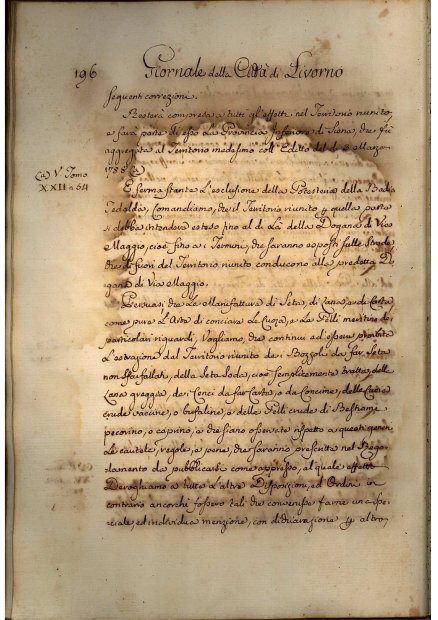 196
Giornale della Città di Livorno
seguenti correzioni.
Resterà compresa a tutti gl'effetti nel Territorio riunito,
e farà parte di esso la Provincia Inferiore di Siena, che fu
aggregata al Territorio medesimo coll'Editto del dì 3 Marzo
1788 (a)
(a) V. Tomo
XXII a 64
E ferma stante l'esclusione della Potesteria della Badia
Tedalda, Comandiamo, che il Territorio riunito p quella parte
si debba intendere esteso fino al di là della Dogana di Via
Maggio, cioè fino a i Termini, che saranno apposti sulle Strade,
che di fuori del Territorio riunito conducono alla predetta Do
gana di Via Maggio.
Persuasi che le Manifatture di Seta, di Lana, e di Carta
come pure l'Arte di conciare le Cuoja, e le Pelli meritino dei
particolari riguardi, Vogliamo, che continui ad essere proibita
l'estrazione dal Territorio riunito de i Bozzoli da far Seta
non sfarfallati, della Seta soda, cioè semplicemente tratta, delle
Lane gregge, de i Cenci da far Carta, o da Concime, delle Cuoia
crude vaccine, o bufaline, e delle Pelli crude di Bestiame
pecorino, o caprino, e che siano osservate rispetto a questi generi
le cautele, regole, e pene, che saranno prescritte nel Rego-
lamento da pubblicarsi come appresso, al quale effetto
Deroghiamo a tutte l'altre Disposizioni, ed Ordini in
contrario ancorchè fossero tali che convenisse farne una spe-
ciale, ed individua menzione, con dichiarazione p altro,